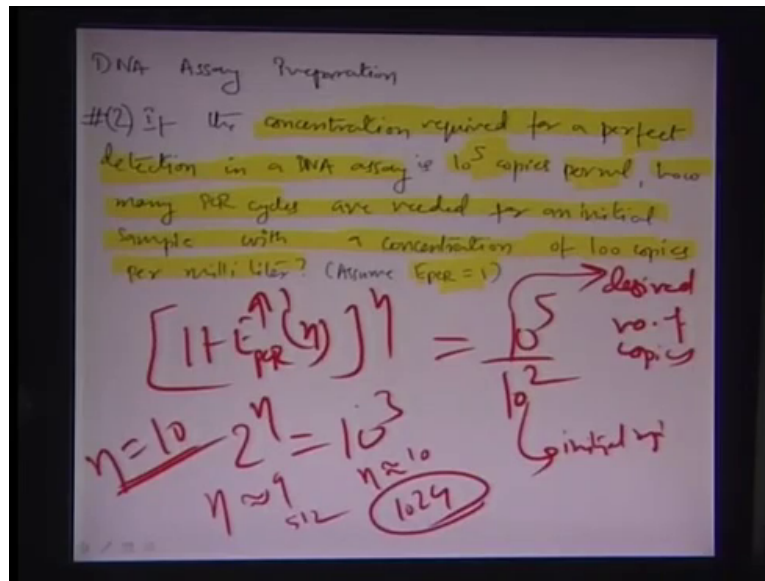 DNA Assay Preparation
#(2) If the concentration required for a perfect
detection in a DNA assay is 10^5 copies per ml, how
many PCR cycles are needed for an initial
sample with a concentration of 100 copies
per milli liter? (Assume EPCR = 1)
[1+EPCR(n)]^n = 10^5/10^2
desired
no. of
copies
initial
n=10 2^n = 10^3
n≈9 n≈10
512 1024